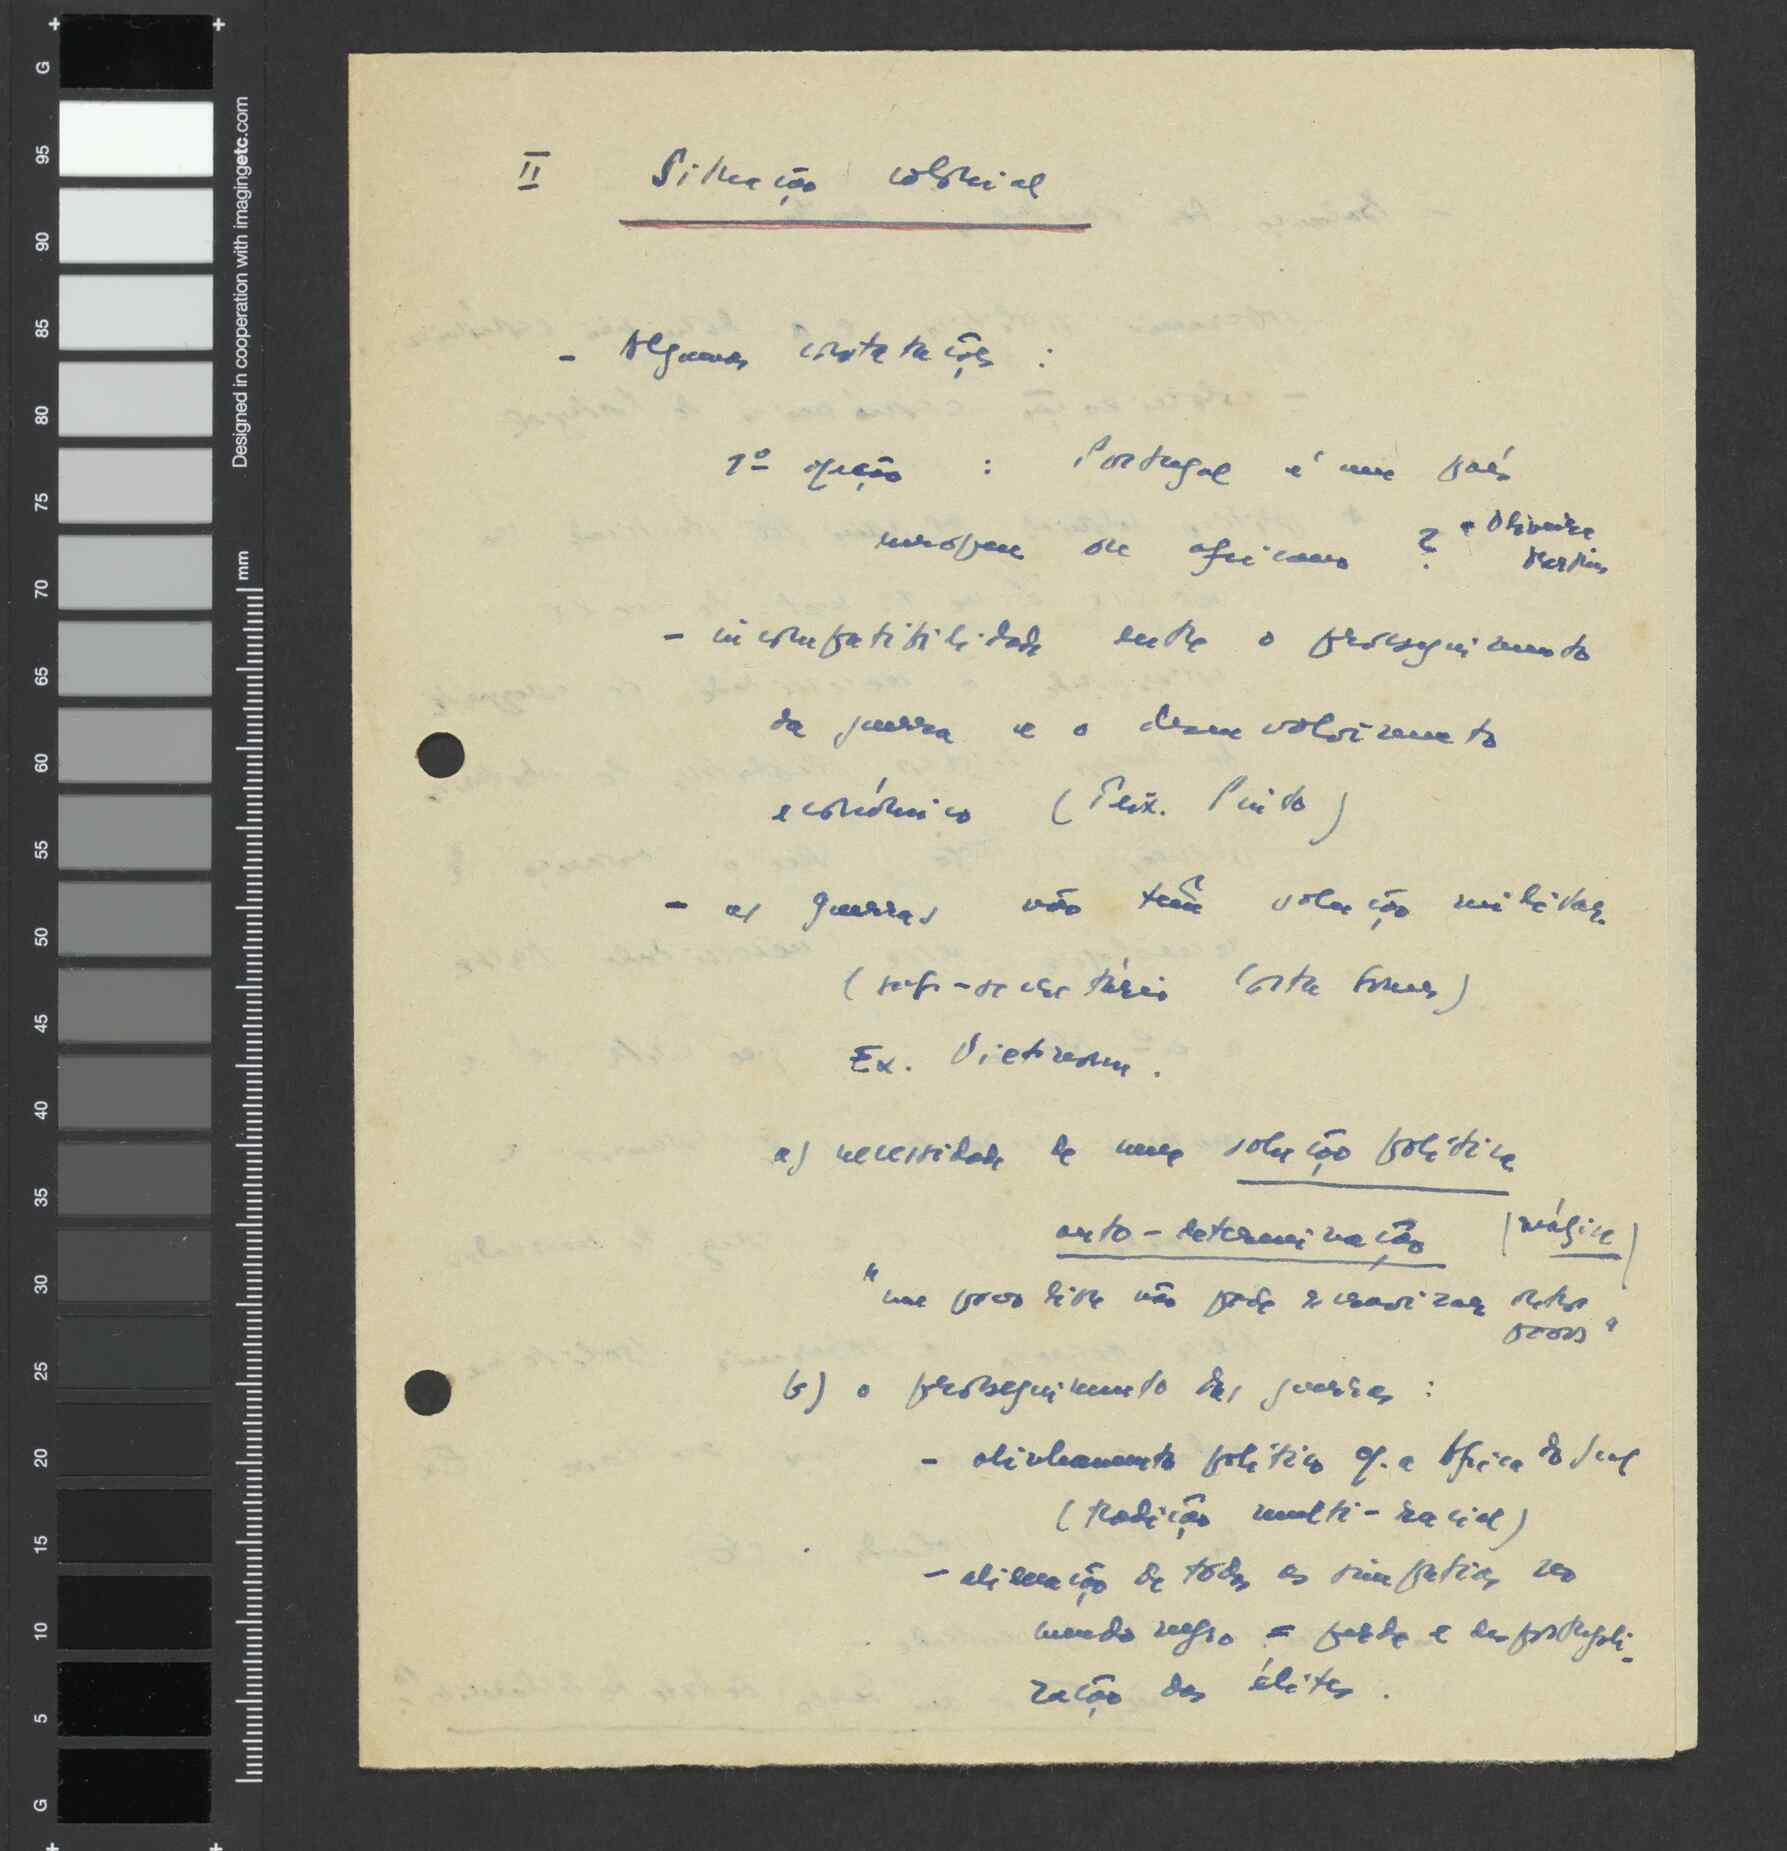 II Situação colonial
- Algumas constatações :
1º opção : Portugal é um país
europeu ou africano ? Oliveira
Martins
- incompatibilidade entre o prosseguimento
da guerra e o desenvolvimento
económico ( Teix. Pinto )
- as guerras não têm solução militar.
( sub-secretário Costa Gomes )
Ex. Vietname .
a) necessidade de uma solução política
auto-determinação
"um povo livre não pode escravizar outros
povos"
b) o prosseguimento das guerras :
- alinhamento político c/. a África do Sul
( tradição multi-racial )
- alienação de todas as simpatias no
mundo negro = perda e desportugali-
zação das élites .
G
95
90
85
80
75
70
65
60
55
50
45
40
35
30
25
20
15
10
5
G
Designed in cooperation with imagingetc.com
mm